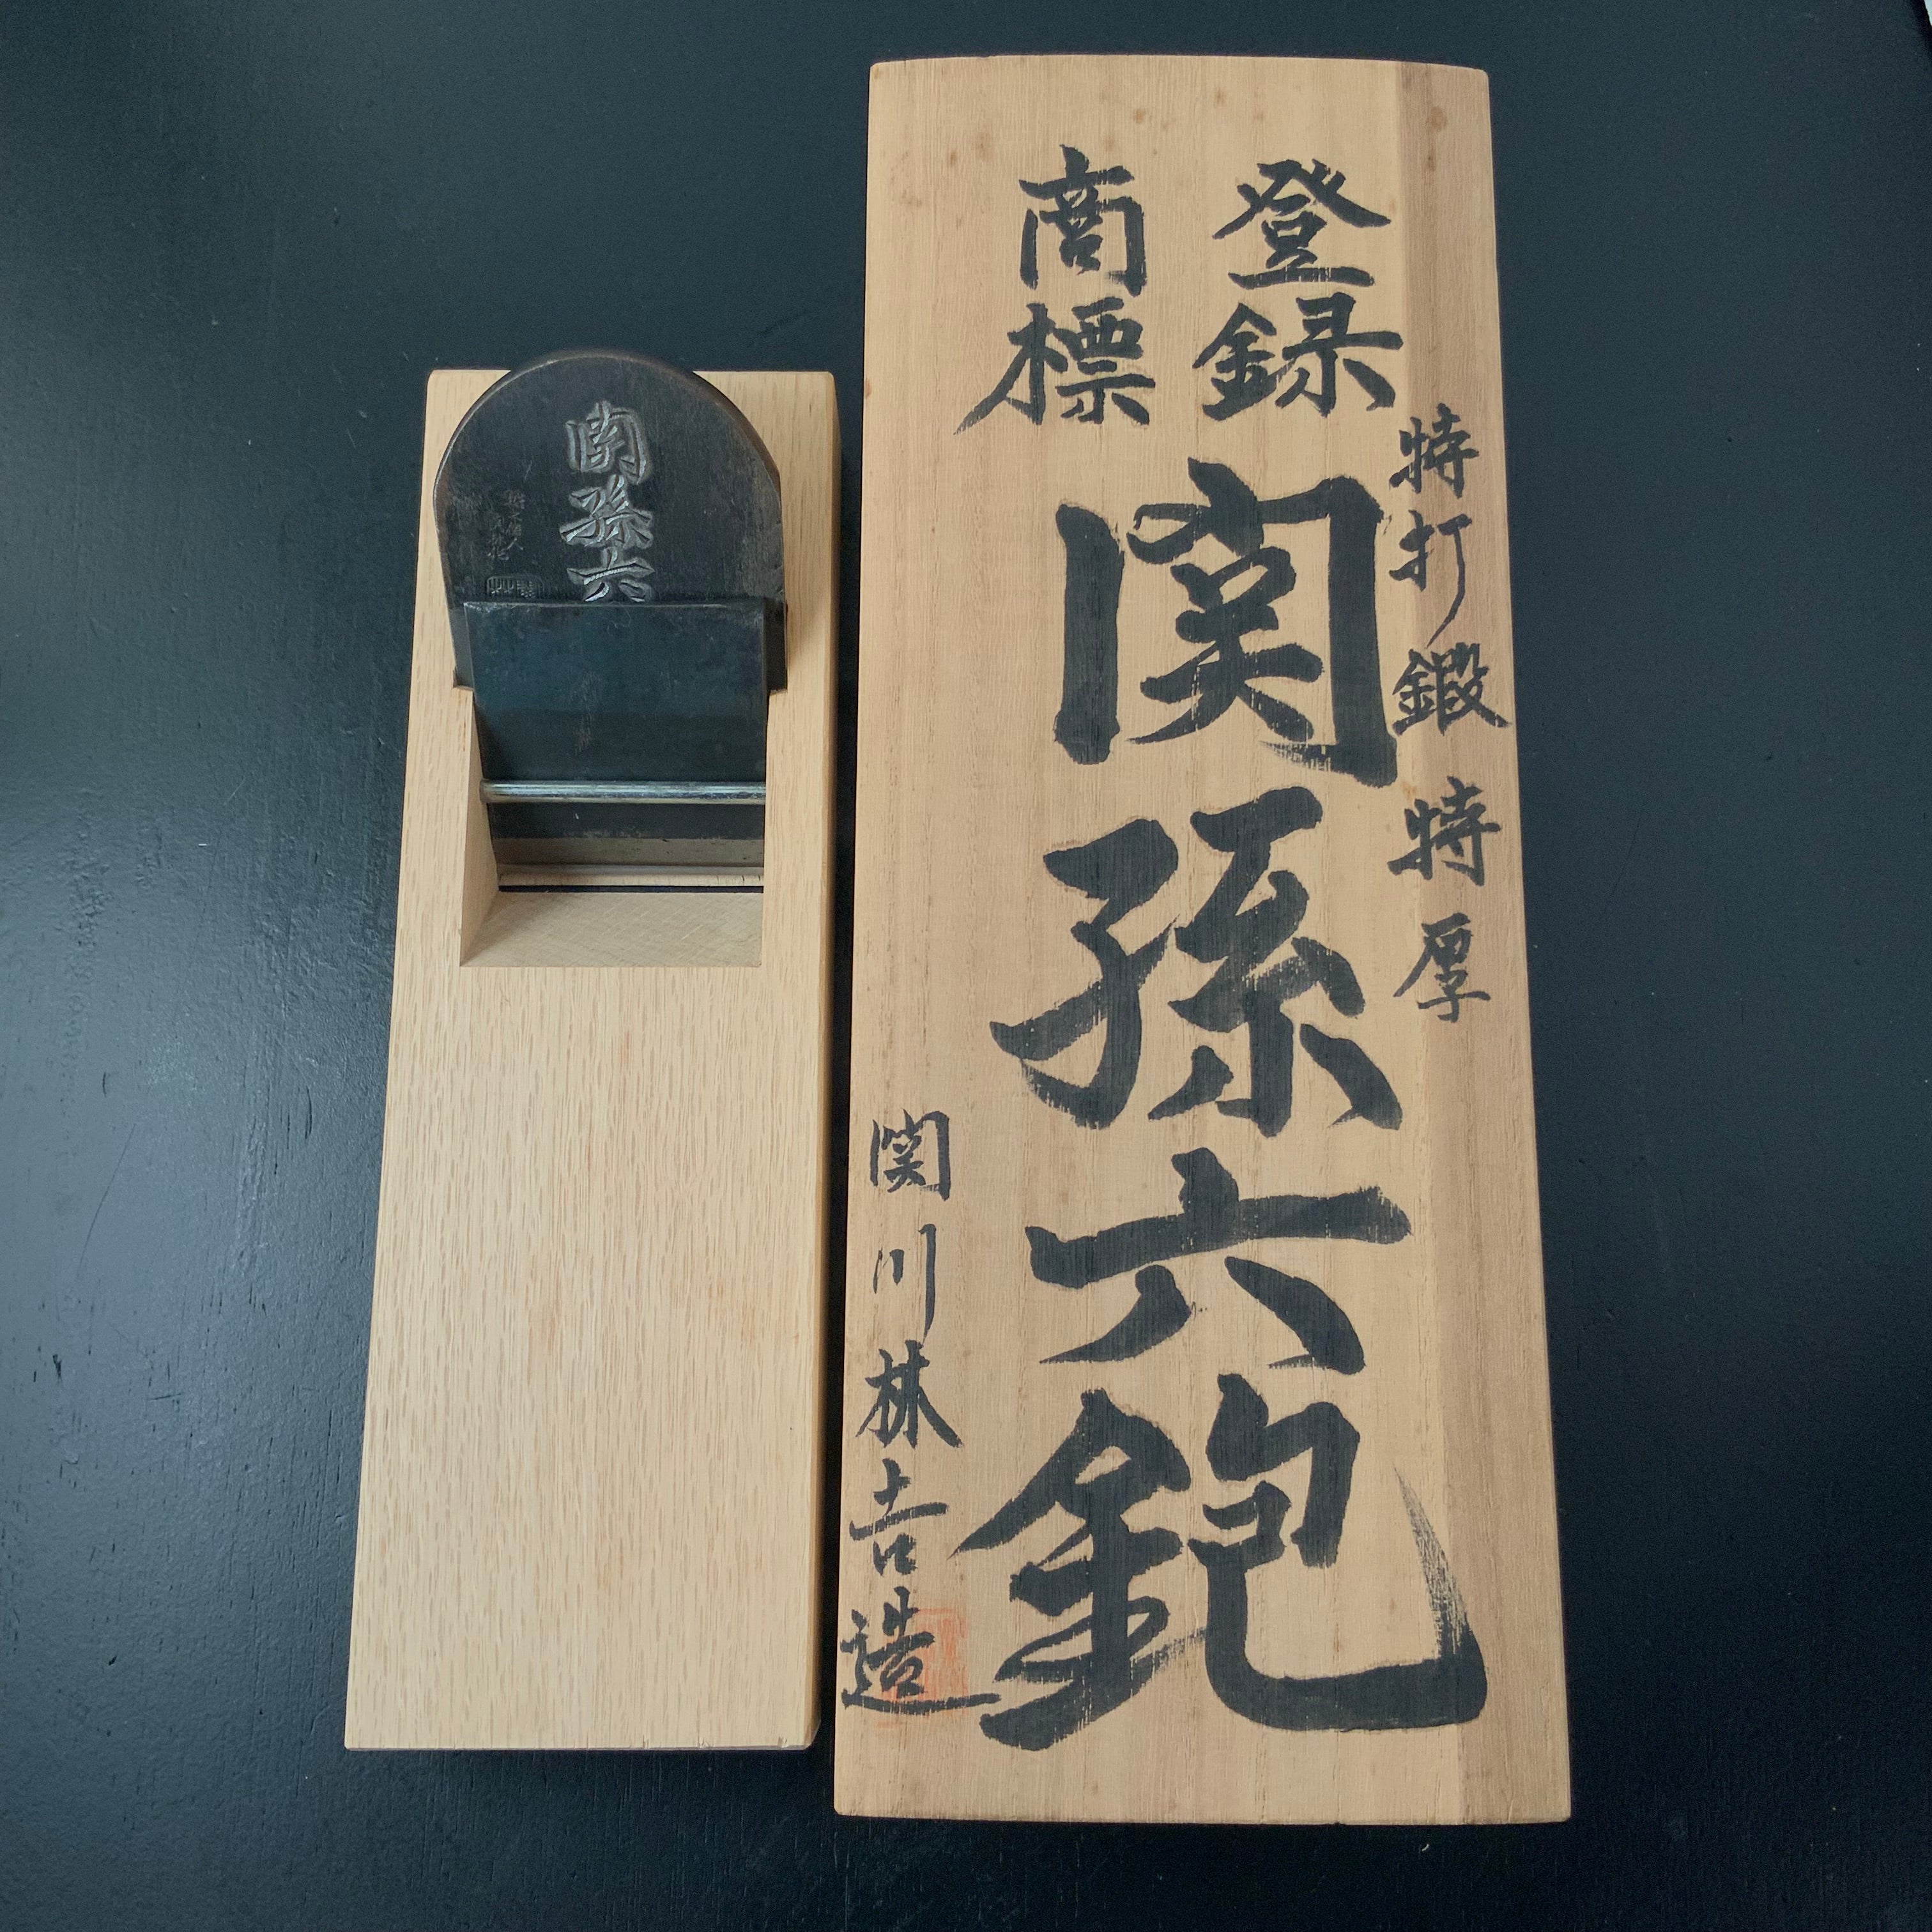 登録
商標
特打鍛 特厚
関孫六鉋
関川林吉造
関孫六